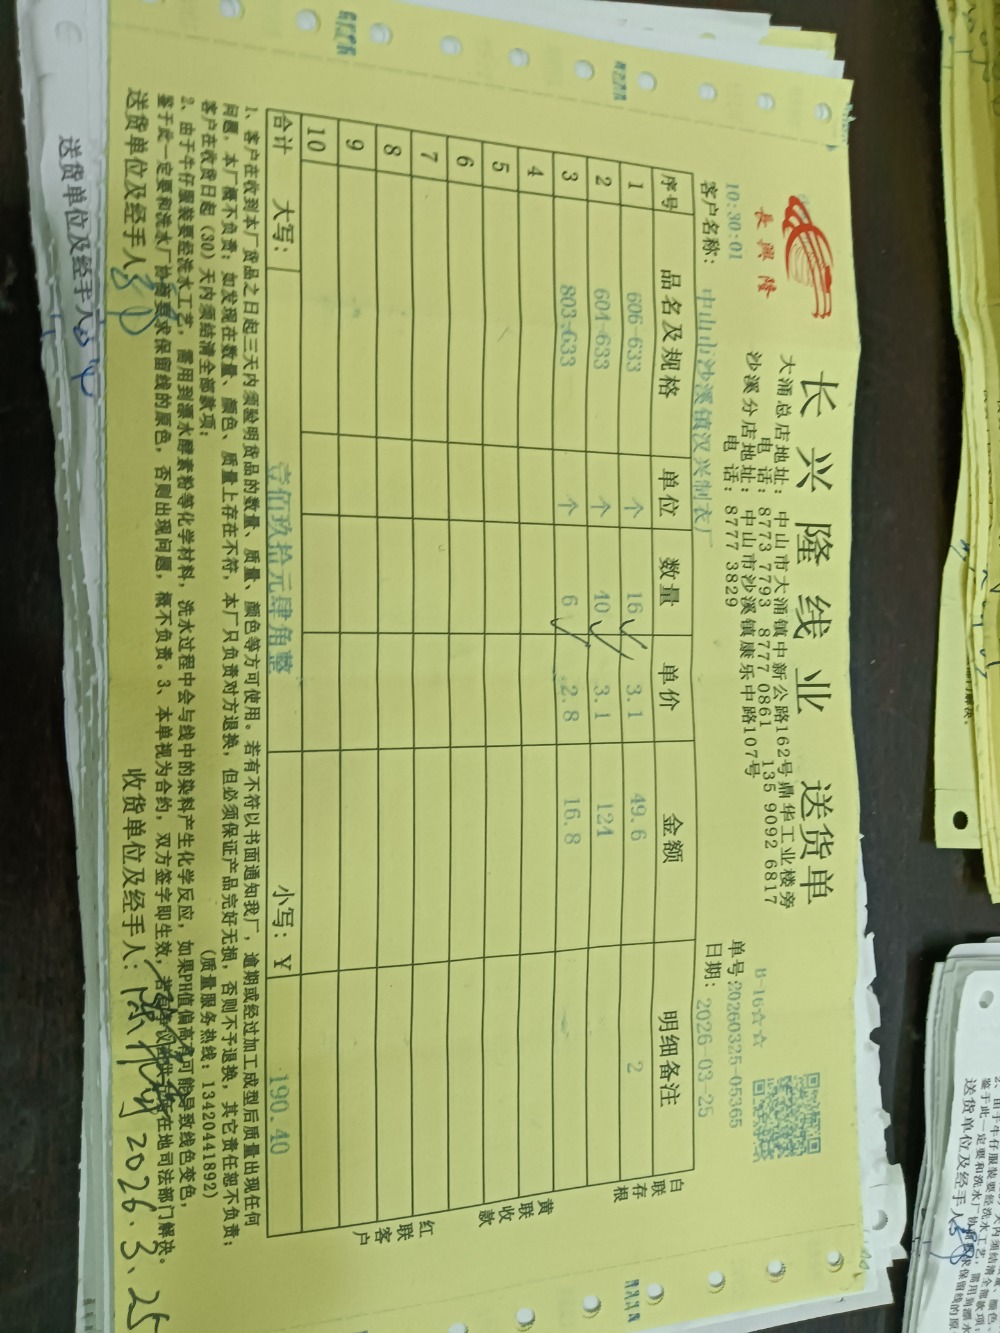 长兴隆线业 送货单
長興隆
大涌总店地址：中山市大涌镇中新公路162号鼎华工业楼旁
电话：8773 7793 8777 0861 135 9092 6817
沙溪分店地址：中山市沙溪镇康乐中路107号
电话：8777 3829
B-16☆☆
10:30:01
单号:20260325-05365
客户名称：中山市沙溪镇汉兴制衣厂
日期：2026-03-25
序号 品名及规格 单位 数量 单价 金额 明细备注
1 606-633 个 16 3.1 49.6 2
2 604-633 个 40 3.1 124
3 803-633 个 6 2.8 16.8
4
5
6
7
8
9
10
合计 大写：壹佰玖拾元肆角整 小写：Y 190.40
白联存根
黄联收款
红联客户
1、客户在收到本厂货品之日起三天内须验明货品的数量、质量、颜色等方可使用。若有不符以书面通知我厂，逾期或经过加工成型后质量出现任何
问题，本厂概不负责；如发现在数量、颜色、质量上存在不符，本厂只负责对方退换，但必须保证产品完好无损，否则不予退换，其它责任恕不负责；
客户在收货日起（30）天内须结清全部款项； （质量服务热线：13420441892）
2、由于牛仔服装要经洗水工艺，需用到漂水酵素粉等化学材料，洗水过程中会与线中的染料产生化学反应，如果PH值偏高有可能导致线色变色，
鉴于此一定要和洗水厂协商要求保留线的原色，否则出现问题，概不负责。3、本单视为合约，双方签字即生效，若有争议 在地司法部门解决。
送货单位及经手人： 收货单位及经手人： 2026.3.25
送货单位及经手人
送货单位及经手人